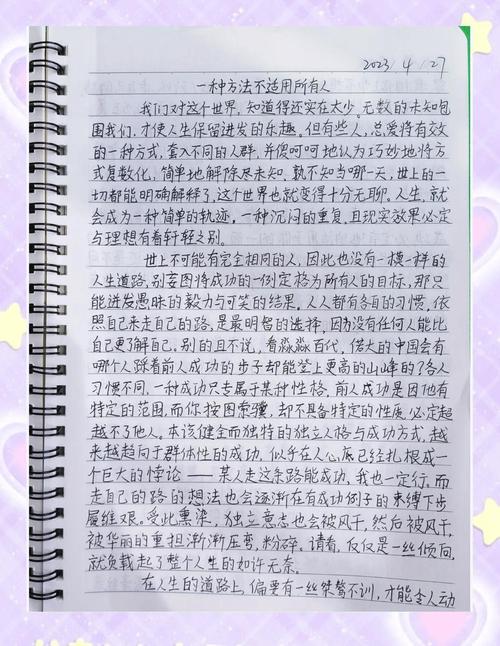 2023 4 27
一种方法不适用所有人
我们对这个世界，知道得还实在太少。无数的未知包
围我们，才使人生保留迸发的乐趣。但有些人，总爱将有效
的一种方式，套入不同的人群，并傻呵呵地认为巧妙地将方
式复数化，简单地解除尽未知，孰不知当哪一天，世上的一
切都能明确解释了，这个世界也就变得十分无聊。人生，就
会成为一种简单的轨迹，一种沉闷的重复，且现实效果必定
与理想有着轩轾之别。
世上不可能有完全相同的人，因此也没有一模一样的
人生道路，别妄图将成功的一例定格为所有人的目标，那只
能迸发愚昧的毅力与可笑的结果。人人都有各自的习惯，依
照自己来走自己的路，是最明智的选择，因为没有任何人能比
自己更了解自己。别的且不说，看淼淼百代，偌大的中国会有
哪个人踩着前人成功的步子却能登上更高的山峰的？各人
习惯不同，一种成功只专属于某种性格，前人成功是因他有
特定的范围，而你按图索骥，却不具备特定的性质，必定超
越不了他人。本该健全而独特的独立人格与成功方式，越
来越趋向于群体性的成功，似乎在人心底已经扎根成一
个巨大的悖论——某人走这条路能成功，我也一定行，而
走自己的路的想法也会逐渐在有成功例子的束缚下步
履维艰。受此熏染，独立意志也会被风干，然后被风干，
被华丽的重担渐渐压弯，粉碎。请看，仅仅是一丝倾向，
就负载起了整个人生的如许无奈。
在人生的道路上，偏要有一丝桀骜不训，才能令人动